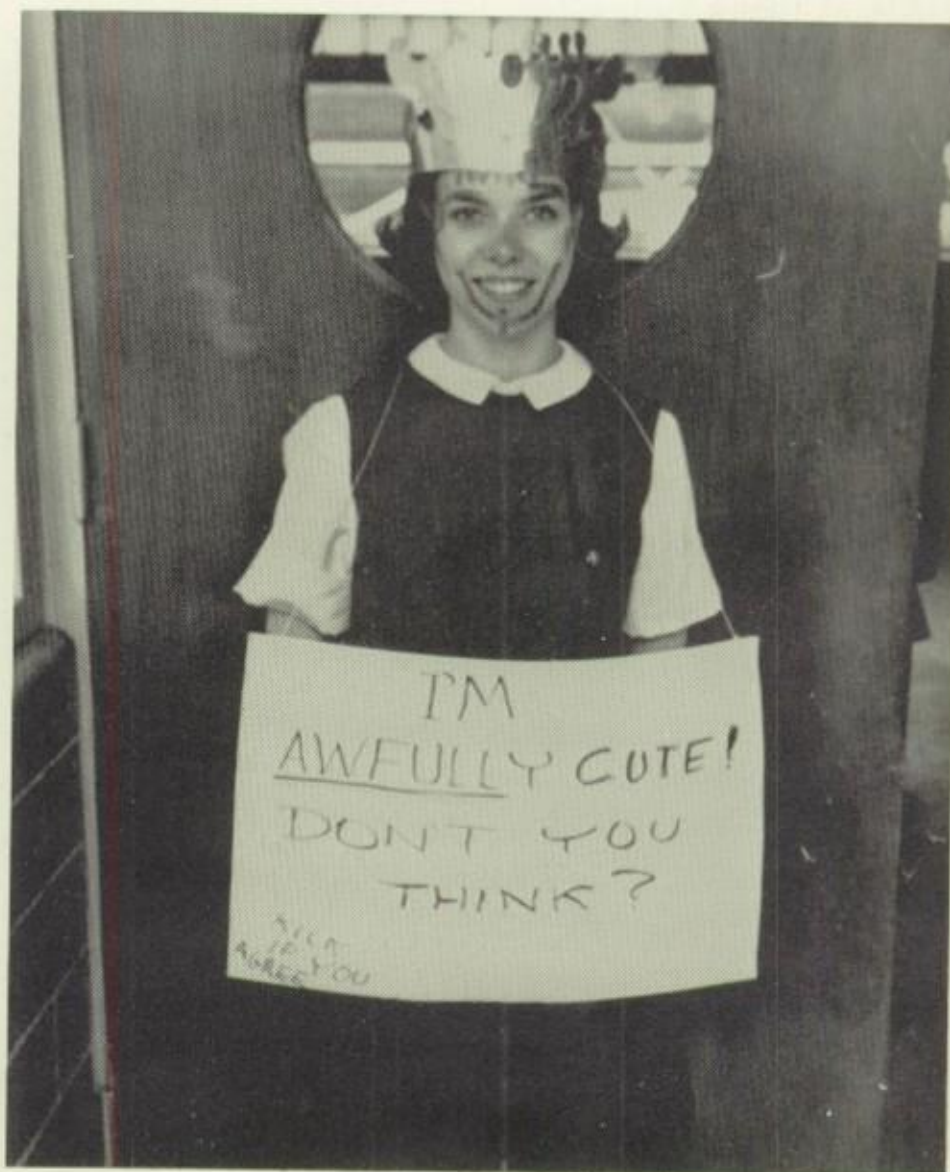 I'M
AWFULLY CUTE!
DON'T YOU
THINK?
IF YOU
AGREE